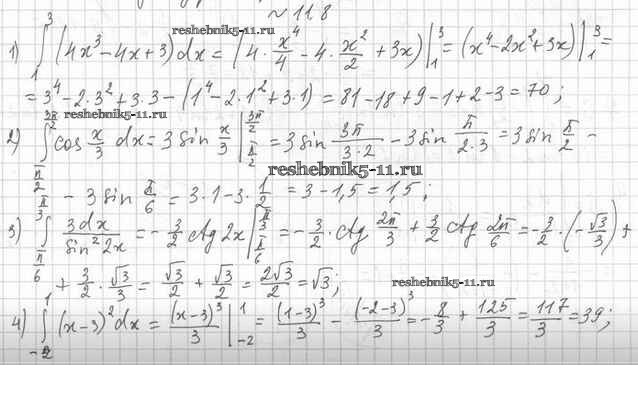 ~ 118
reshebnik5-11.ru
1) ∫₁³ (4x³-4x+3)dx = (4·x⁴/4 - 4·x²/2 + 3x)|₁³ = (x⁴-2x²+3x)|₁³ =
= 3⁴-2·3²+3·3-(1⁴-2·1²+3·1) = 81-18+9-1+2-3 = 70;
2) ∫_{π/2}^{3π/2} cos x/3 dx = 3 sin x/3 |_{π/2}^{3π/2} = 3 sin 3π/(3·2) - 3 sin π/(2·3) = 3 sin π/2 -
reshebnik5-11.ru
- 3 sin π/6 = 3·1-3·1/2 = 3-1,5 = 1,5;
3) ∫_{π/6}^{π/3} 3dx/sin²2x = -3/2 ctg 2x |_{π/6}^{π/3} = -3/2 · ctg 2π/3 + 3/2 ctg 2π/6 = -3/2 · (-√3/3) +
+ 3/2 · √3/3 = √3/2 + √3/2 = 2√3/2 = √3;
reshebnik5-11.ru
4) ∫₋₂¹ (x-3)²dx = (x-3)³/3 |₋₂¹ = (1-3)³/3 - (-2-3)³/3 = -8/3 + 125/3 = 117/3 = 39;